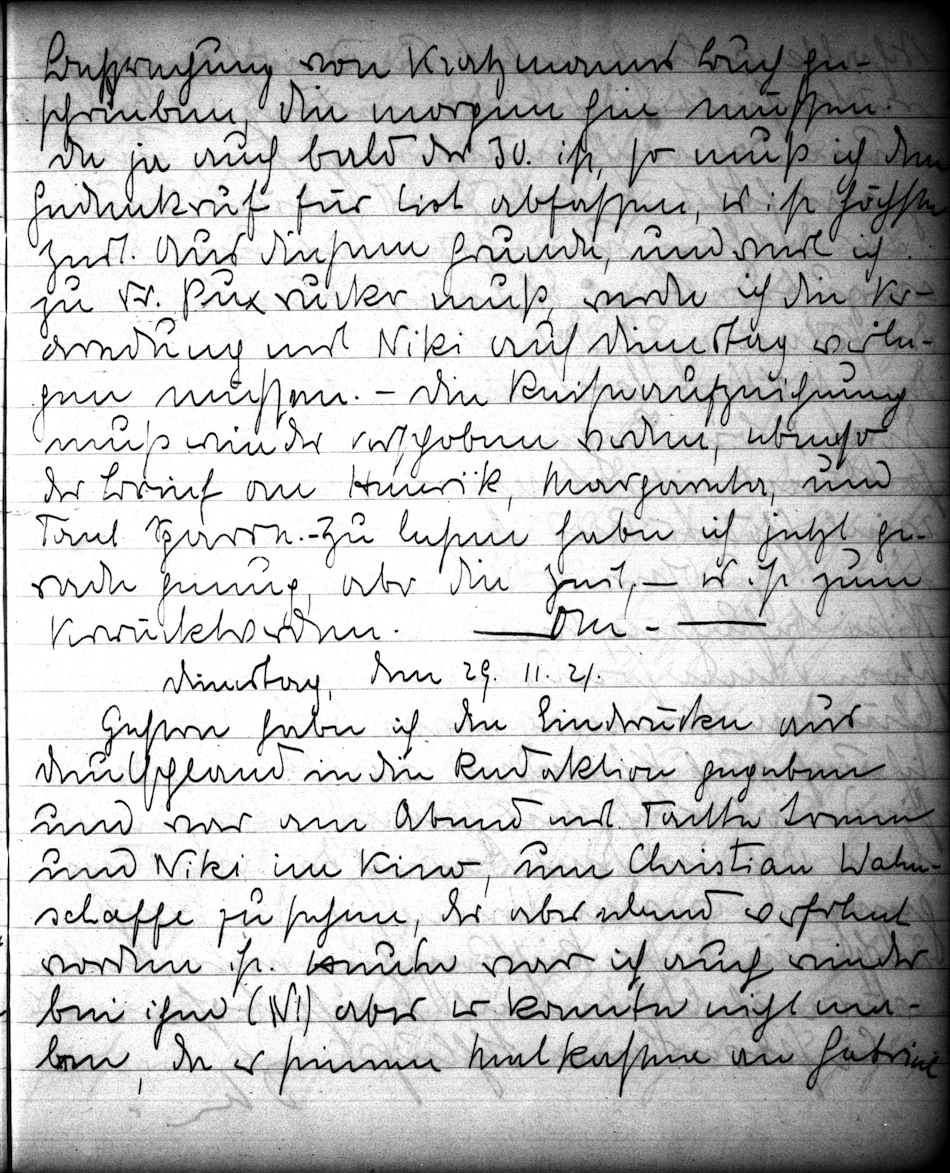 Besprechung von Kratzmanns Buch ge-
schrieben, die morgen hin müssen.
Da ja auch bald der 30. ist, so muß ich den
Gedenkruf für List abfassen, es ist höchste
Zeit. Aus diesem Grunde, und weil ich
zu Dr. muß, werde ich die Ver-
abredung mit Niki auf Dienstag verle-
gen müssen. – Die Reiseaufzeichnung
muß wieder verschoben werden, ebenso
der Brief an Henrik, Margareta, und
Tant. – Zu lesen habe ich jetzt ge-
rade genug, aber die Zeit, – es ist zum
Verrücktwerden. — Om – —
Dienstag, den 29. 11. 21.
Gestern habe ich den Eindrücken aus
Deutschland in die Redaktion gegeben
und war am Abend mit Tante Irene
und Niki im Kino, um Christian Wahn-
schaffe zu sehen, der aber elend verfilmt
worden ist. Heute war ich auch wieder
bei ihm (N!) aber er konnte nicht ma-
len, da er seinen Malkasten an Gabriel